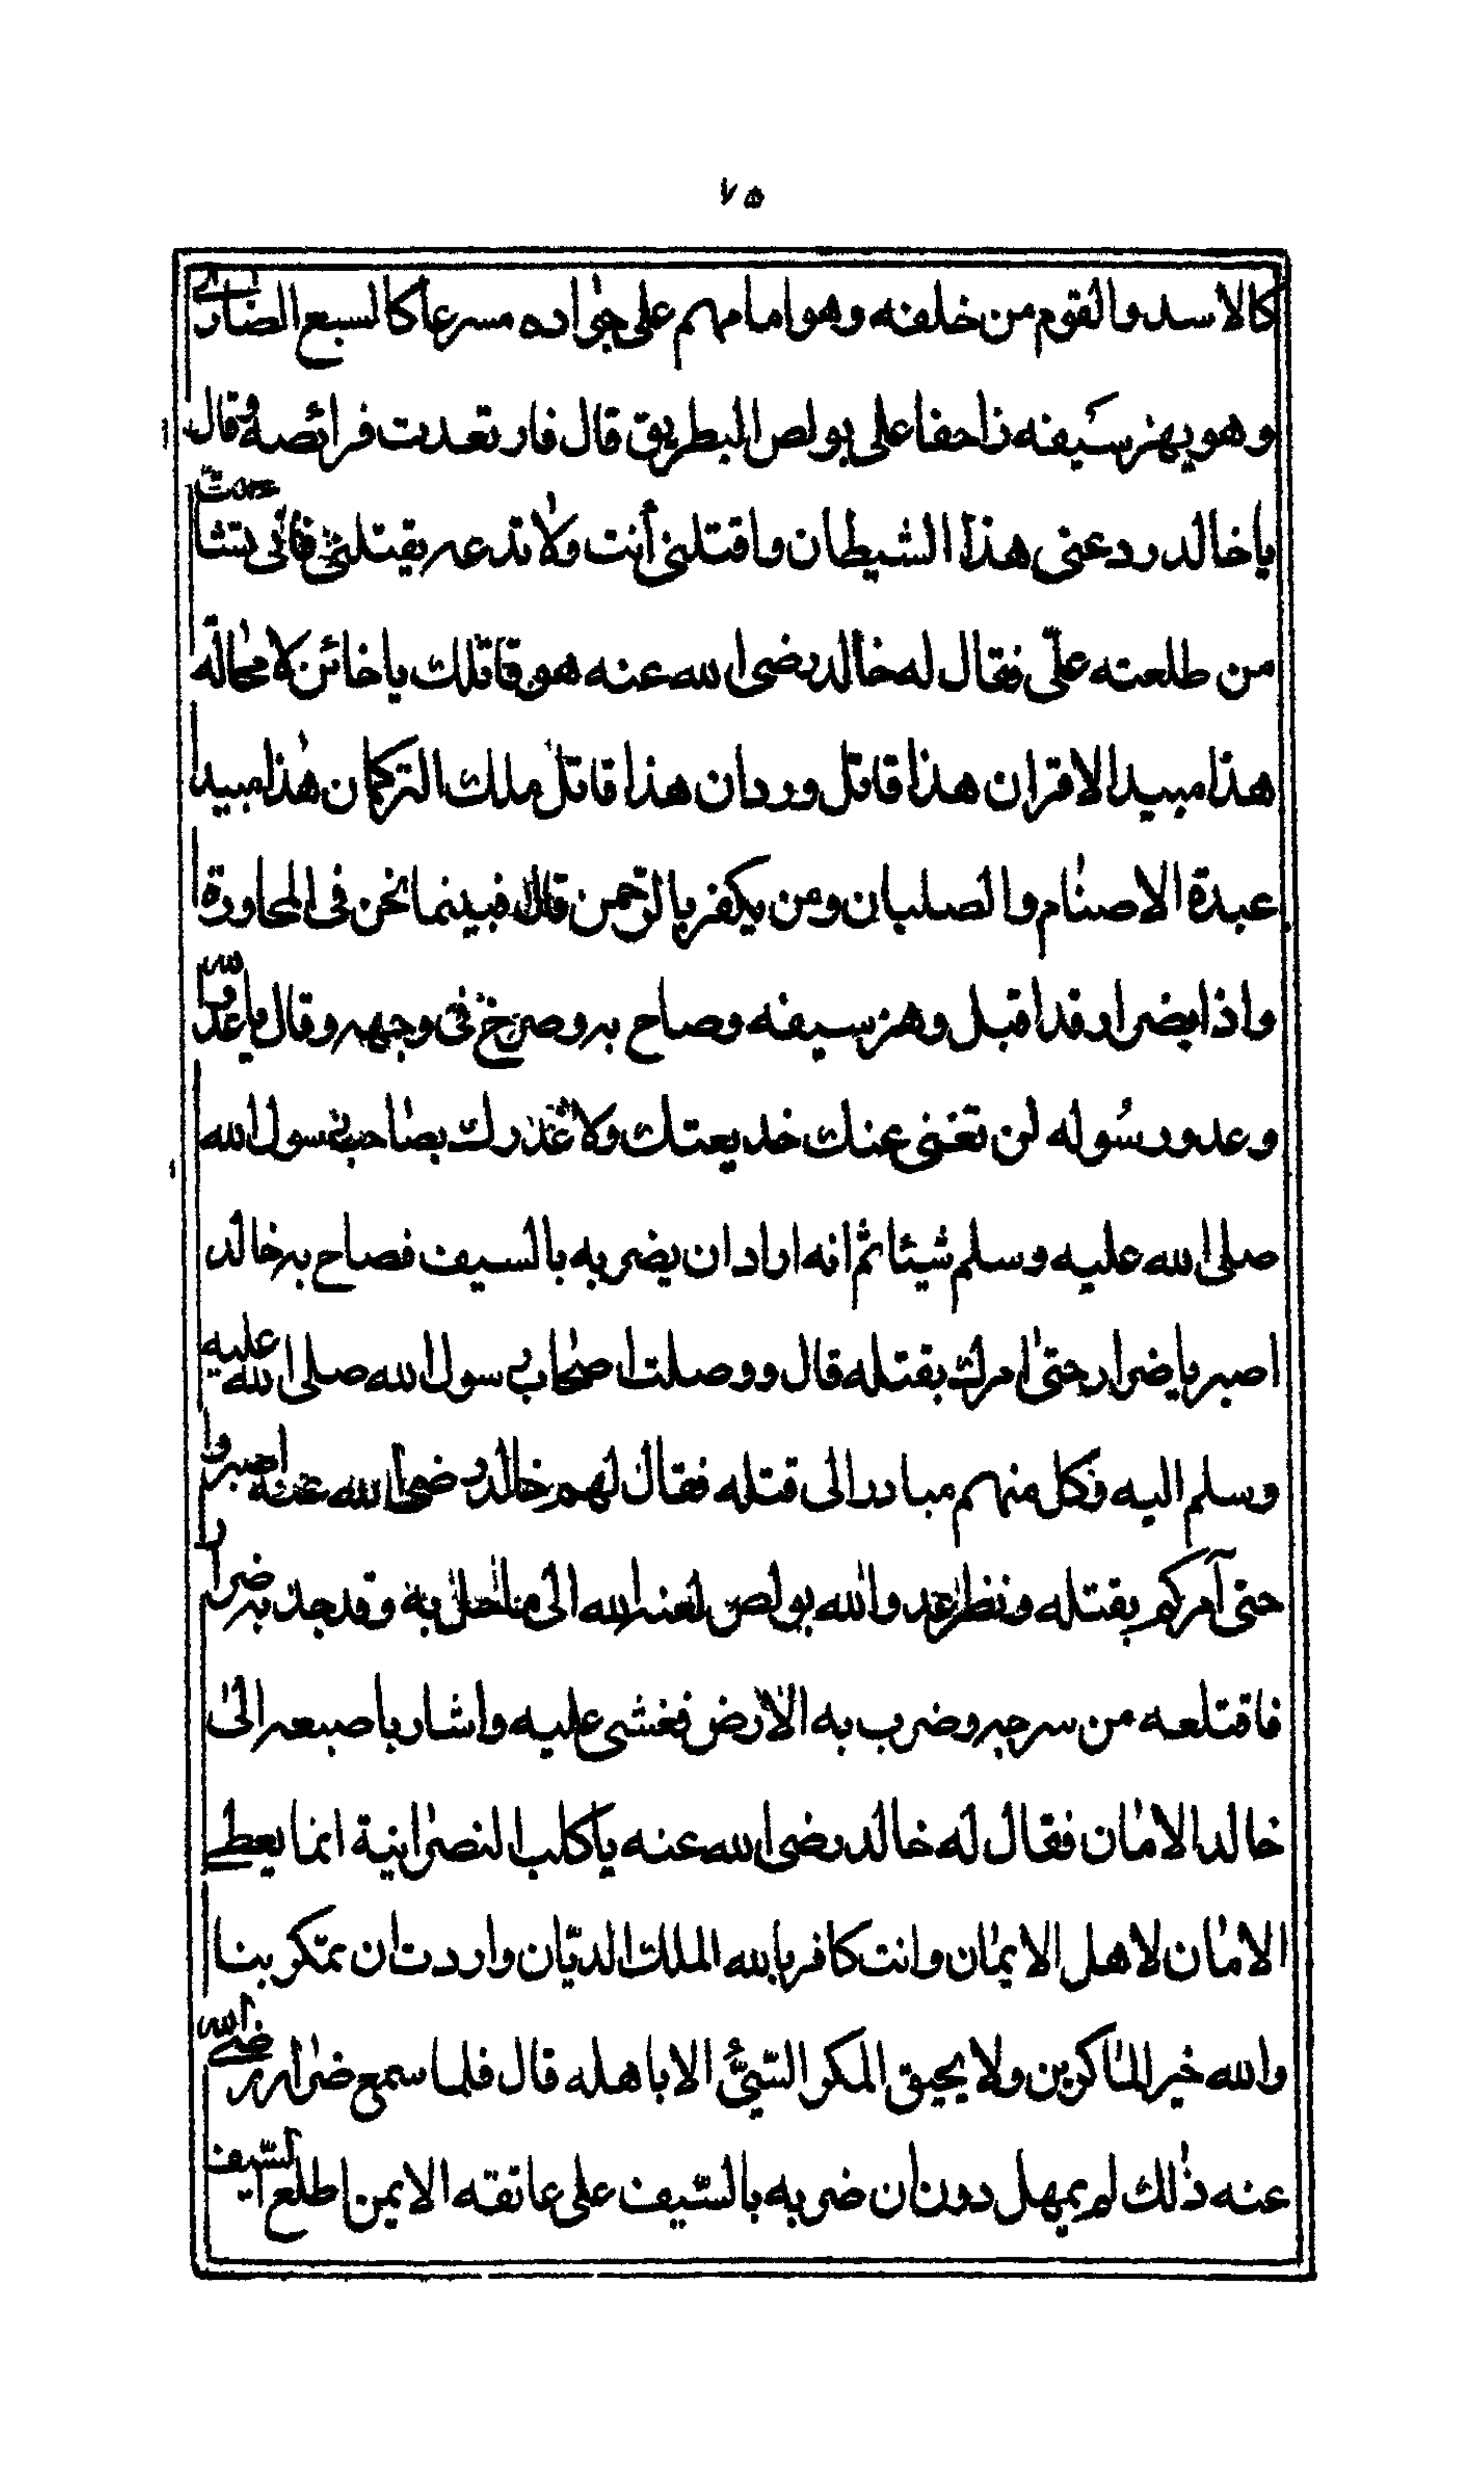 ٧٥
كالاسد والقوم من خلفه وهو امامهم على جواده مسرعا كالسبع الضارى
وهو يهز سيفه زاحفا على بولص البطريق قال فارتعدت فرائصه وقال
يا خالد رد عنى هذا الشيطان واقتلنى أنت ولا تدعه يقتلنى فانى تشاءمت
من طلعته علىّ فقال له خالد رضى الله عنه هو قاتلك يا خائن لا محالة
هذا مبيد الاقران هذا قاتل وردان هذا قاتل ملك التركمان هذا مبيد
عبدة الاصنام والصلبان ومن يكفر بالرّحمن قال فبينما نحن فى المحاورة
واذا بضرار قد اقبل وهز سيفه وصاح به وصرخ فى وجهه وقال يا عدوّ الله
وعدو رسُوله لن تغنى عنك خديعتك ولا غدرك بصاحب رسول الله
صلى الله عليه وسلم شيئا ثم انه اراد ان يضربه بالسيف فصاح به خالد
اصبر يا ضرار حتى امرك بقتله قال ووصلت اصحاب رسول الله صلى الله عليه
وسلم اليه وكل منهم مبادر الى قتله فقال لهم خالد رضى الله عنه اصبروا
حتى آمركم بقتله ونظر عدو الله بولص لعنه الله الى ما حل به وقد جذبه ضرار
فاقتلعه من سرجه وضرب به الارض فغشى عليه واشار باصبعه الى
خالد الامان فقال له خالد رضى الله عنه يا كلب النصرانية انما يعطى
الامان لاهل الايمان وانت كافر بالله الملك الديّان واردت ان تمكر بنا
والله خير الماكرين ولا يحيق المكر السّيئُ الا باهله قال فلما سمع ضرار رضى الله
عنه ذلك لم يمهل دون ان ضربه بالسّيف على عاتقه الايمن اطلع السّيف